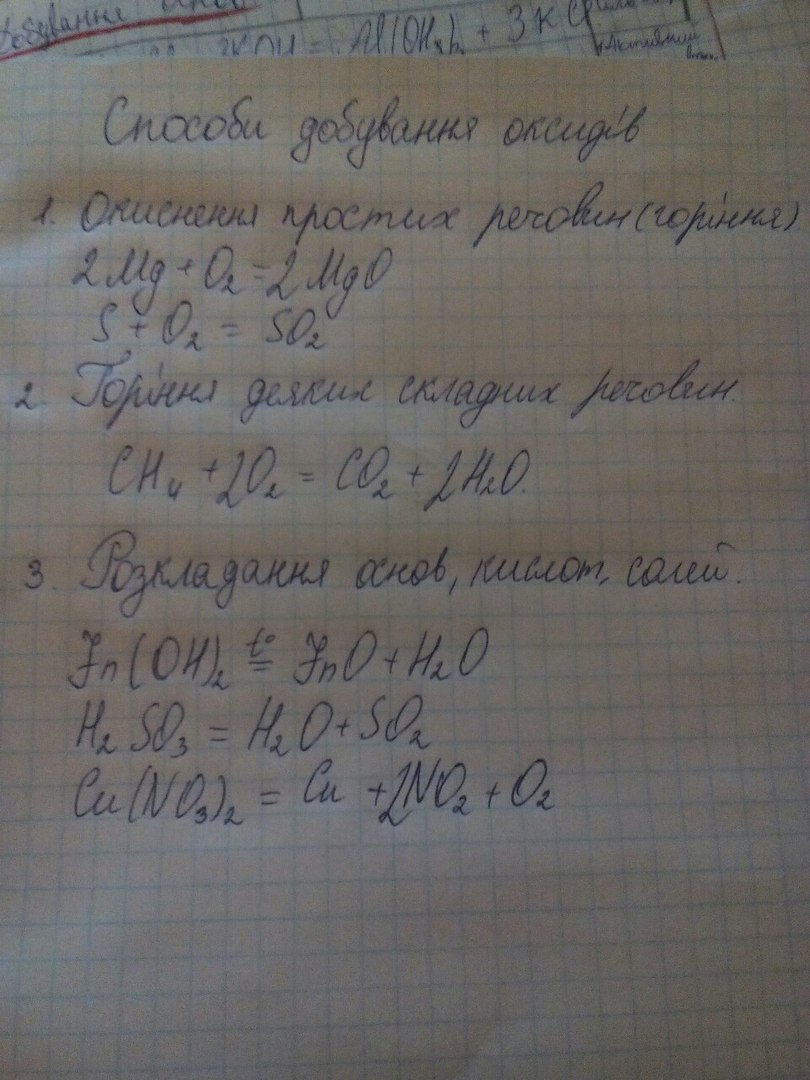 Добування основ
2KOH = Al(OH)3 + 3KCl
Активний
Способи добування оксидів
1. Окиснення простих речовин (горіння)
2Mg + O2 = 2MgO
S + O2 = SO2
2. Горіння деяких складних речовин.
CH4 + 2O2 = CO2 + 2H2O.
3. Розкладання основ, кислот, солей.
Zn(OH)2 t°= ZnO + H2O
H2SO3 = H2O + SO2
Cu(NO3)2 = Cu + 2NO2 + O2